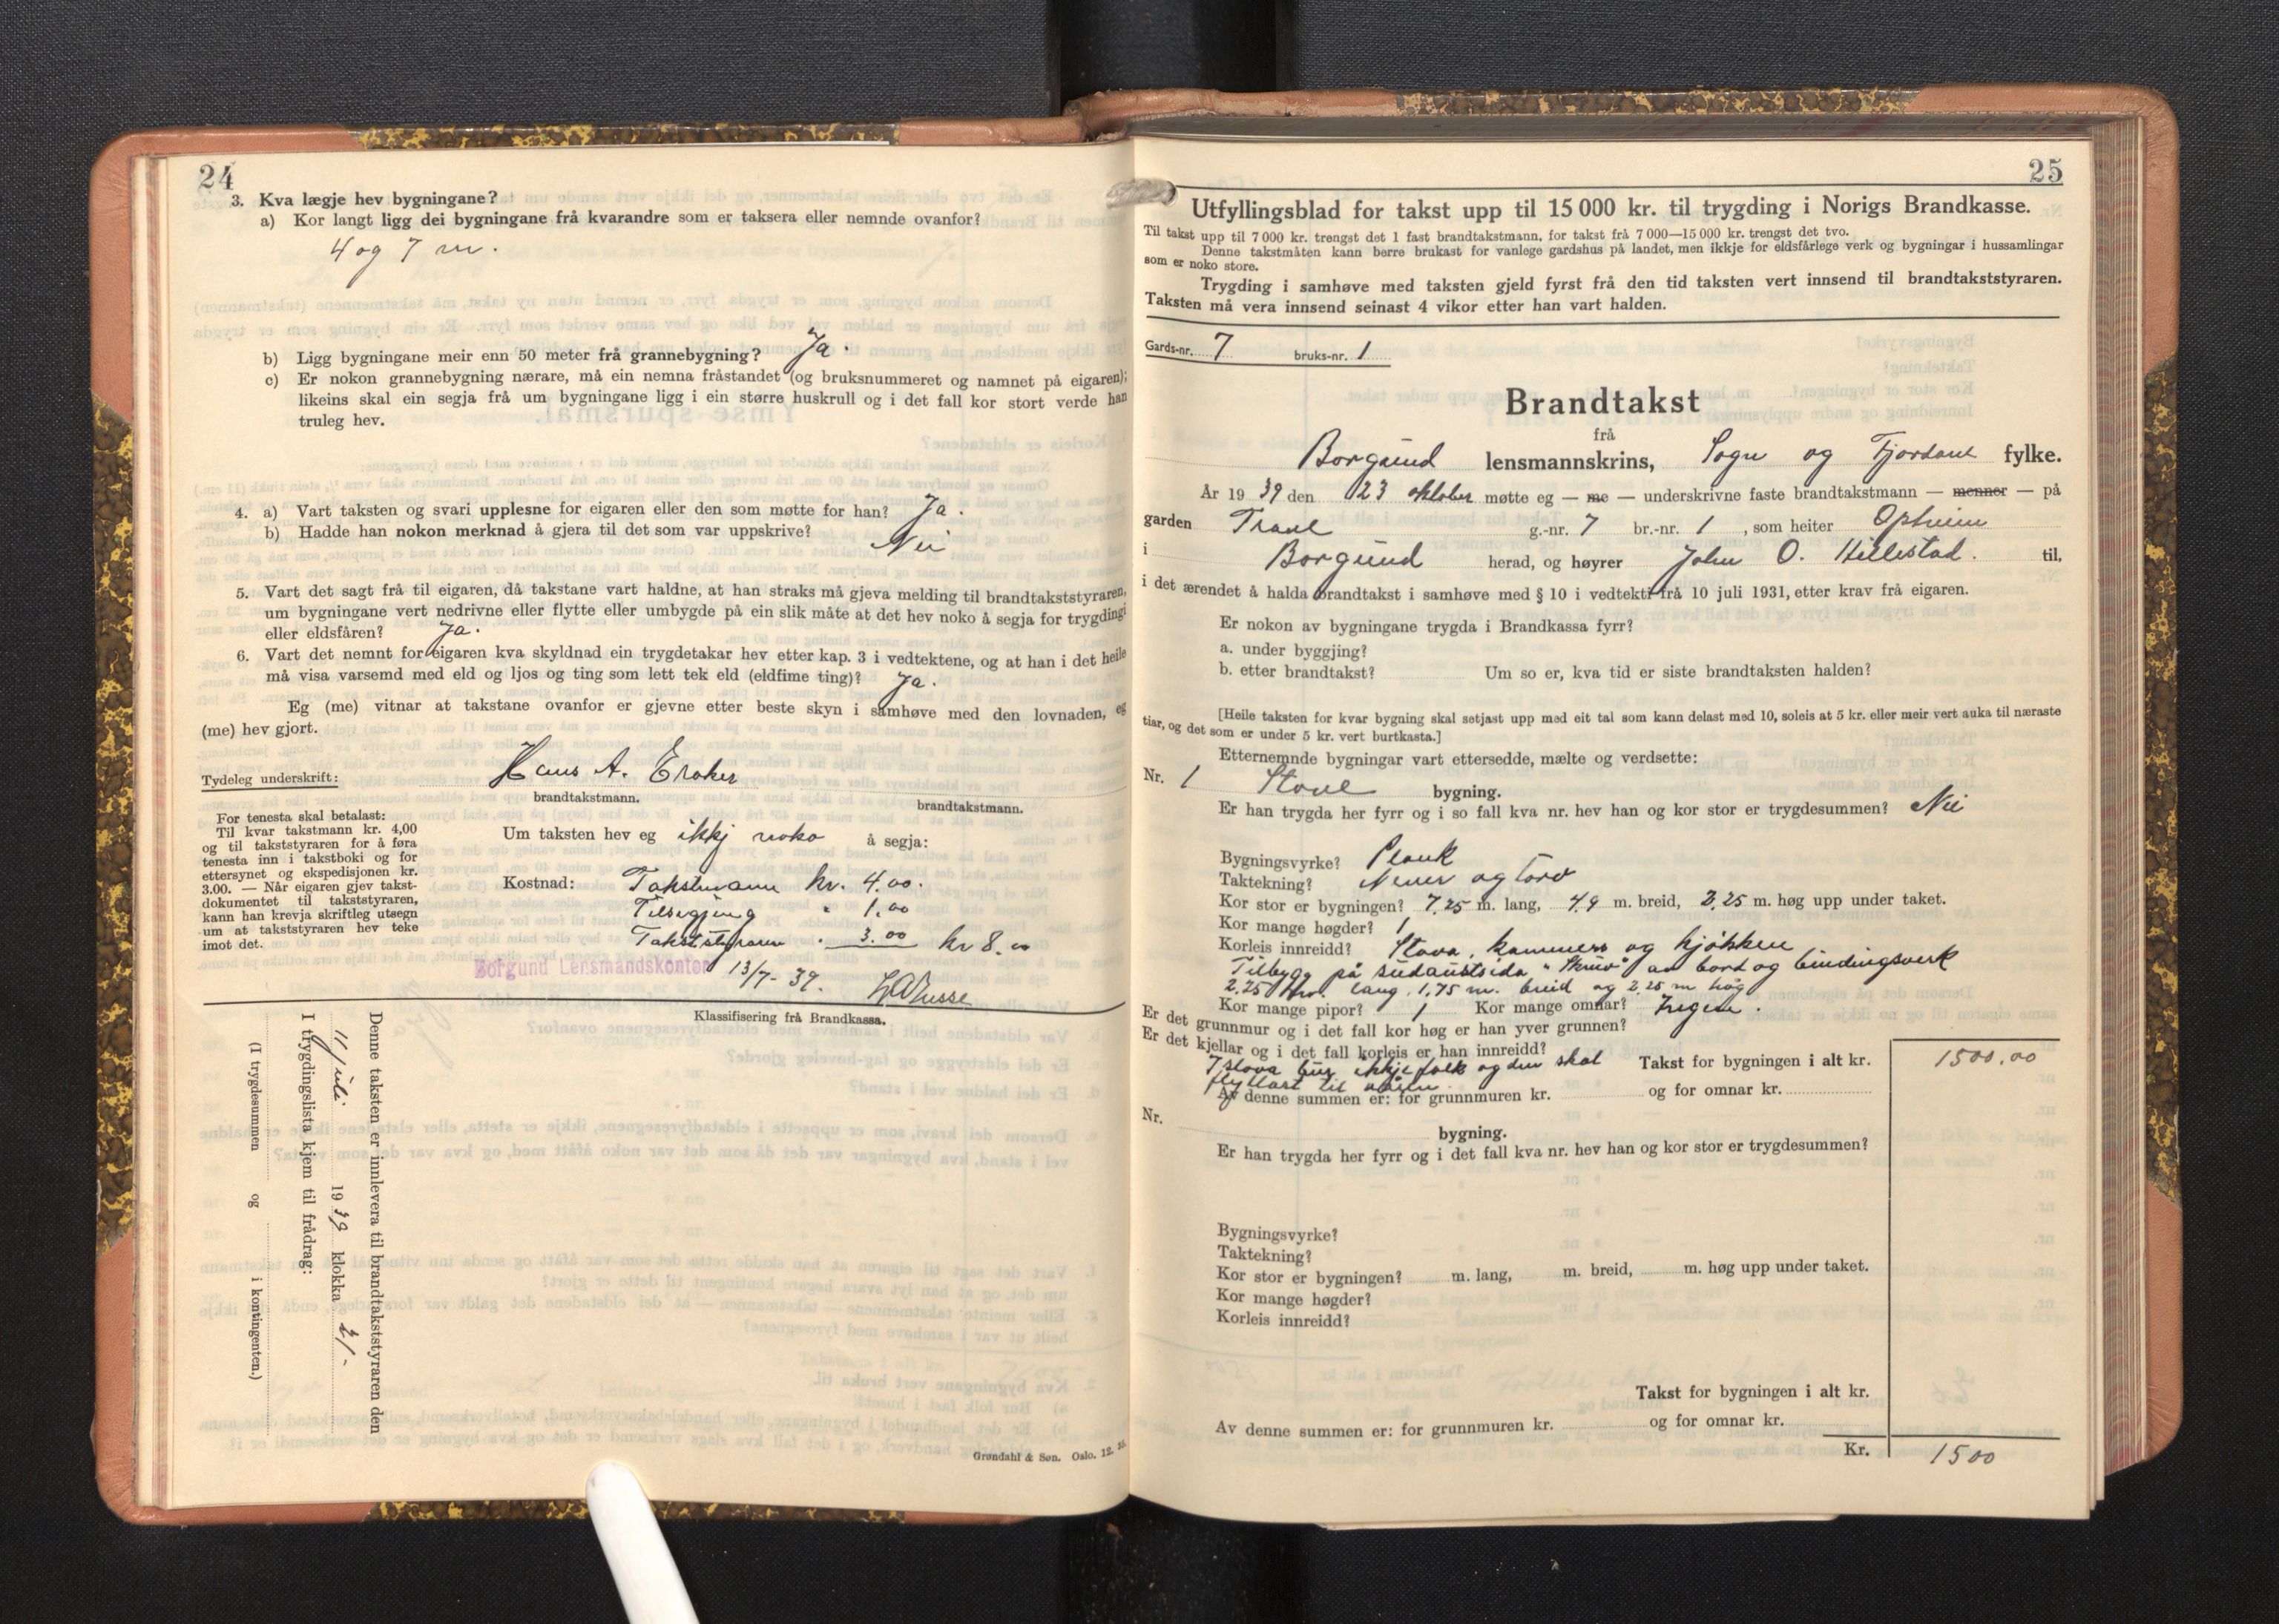 24
3. Kva lægje hev bygningane?
a) Kor langt ligg dei bygningane frå kvarandre som er taksera eller nemnde ovanfor?
4 og 7 m.
b) Ligg bygningane meir enn 50 meter frå grannebygning? Ja.
c) Er nokon grannebygning nærare, må ein nemna fråstandet (og bruksnummeret og namnet på eigaren);
likeins skal ein segja frå um bygningane ligg i ein større huskrull og i det fall kor stort verde han
truleg hev.
4. a) Vart taksten og svari upplesne for eigaren eller den som møtte for han? Ja.
b) Hadde han nokon merknad å gjera til det som var uppskrive? Nei
5. Vart det sagt frå til eigaren, då takstane vart haldne, at han straks må gjeva melding til brandtakststyraren,
um bygningane vert nedrivne eller flytte eller umbygde på ein slik måte at det hev noko å segja for trygdingi
eller eldsfåren? Ja.
6. Vart det nemnt for eigaren kva skyldnad ein trygdetakar hev etter kap. 3 i vedtektene, og at han i det heile
må visa varsemd med eld og ljos og ting som lett tek eld (eldfime ting)? Ja.
Eg (me) vitnar at takstane ovanfor er gjevne etter beste skyn i samhøve med den lovnaden, eg
(me) hev gjort.
Tydeleg underskrift: Hans A. Eraker
brandtakstmann. brandtakstmann.
For tenesta skal betalast:
Til kvar takstmann kr. 4,00
og til takststyraren for å føra
tenesta inn i takstboki og for
ettersynet og ekspedisjonen kr.
3.00. — Når eigaren gjev takst-
dokumentet til takststyraren,
kann han krevja skriftleg utsegn
um at takststyraren hev teke
imot det.
Um taksten hev eg ikkj noko å segja:
Kostnad: Takstmann kr. 4.00.
Tilsegjing " 1.00
Takststyraren " 3.00 kr 8.00
Borgund Lensmandskontor 13/7-39.
Klassifisering frå Brandkassa.
Denne taksten er innlevera til brandtakststyraren den
11 juli 1939 klokka 21-
I trygdingslista kjem til frådrag:
(I trygdesummen og i kontingenten.)
Grøndahl & Søn. Oslo. 12. 35.
25
Utfyllingsblad for takst upp til 15 000 kr. til trygding i Norigs Brandkasse.
Til takst upp til 7 000 kr. trengst det 1 fast brandtakstmann, for takst frå 7 000—15 000 kr. trengst det tvo.
Denne takstmåten kann berre brukast for vanlege gardshus på landet, men ikkje for eldsfårlege verk og bygningar i hussamlingar
som er noko store.
Trygding i samhøve med taksten gjeld fyrst frå den tid taksten vert innsend til brandtakststyraren.
Taksten må vera innsend seinast 4 vikor etter han vart halden.
Gards-nr. 7 bruks-nr. 1
Brandtakst
frå
Borgund lensmannskrins, Sogn og Fjordane fylke.
År 1939 den 23 oktober møtte eg — me — underskrivne faste brandtakstmann — menner — på
garden g.-nr. 7 br.-nr. 1, som heiter Opheim
i Borgund herad, og høyrer John O. Hillestad. til,
i det ærendet å halda brandtakst i samhøve med § 10 i vedtekti frå 10 juli 1931, etter krav frå eigaren.
Er nokon av bygningane trygda i Brandkassa fyrr?
a. under byggjing?
b. etter brandtakst? Um so er, kva tid er siste brandtaksten halden?
[Heile taksten for kvar bygning skal setjast upp med eit tal som kann delast med 10, soleis at 5 kr. eller meir vert auka til næraste
tiar, og det som er under 5 kr. vert burtkasta.]
Etternemnde bygningar vart ettersedde, mælte og verdsette:
Nr. 1 Stove bygning.
Er han trygda her fyrr og i so fall kva nr. hev han og kor stor er trygdesummen? Nei
Bygningsvyrke? Plank
Taktekning? Never og torv
Kor stor er bygningen? 7.25 m. lang, 4.9 m. breid, 3.25 m. høg upp under taket.
Kor mange høgder? 1
Korleis innreidd? Stova, kammers og kjøkken
Tilbygg på sudaustsida " " av bord og bindingsverk
2.25 m. lang, 1.75 m. breid og 2.25 m høg
Kor mange pipor? 1 Kor mange omnar? Ingen.
Er det grunnmur og i det fall kor høg er han yver grunnen?
Er det kjellar og i det fall korleis er han innreidd?
I stova bur ikkje folk og den skal Takst for bygningen i alt kr. 1500.00
flyttast til våren.
Av denne summen er: for grunnmuren kr. og for omnar kr.
Nr. bygning.
Er han trygda her fyrr og i det fall kva nr. hev han og kor stor er trygdesummen?
Bygningsvyrke?
Taktekning?
Kor stor er bygningen? m. lang, m. breid, m. høg upp under taket.
Kor mange høgder?
Korleis innreidd?
Takst for bygningen i alt kr.
Av denne summen er: for grunnmuren kr. og for omnar kr.
Kr. 1500